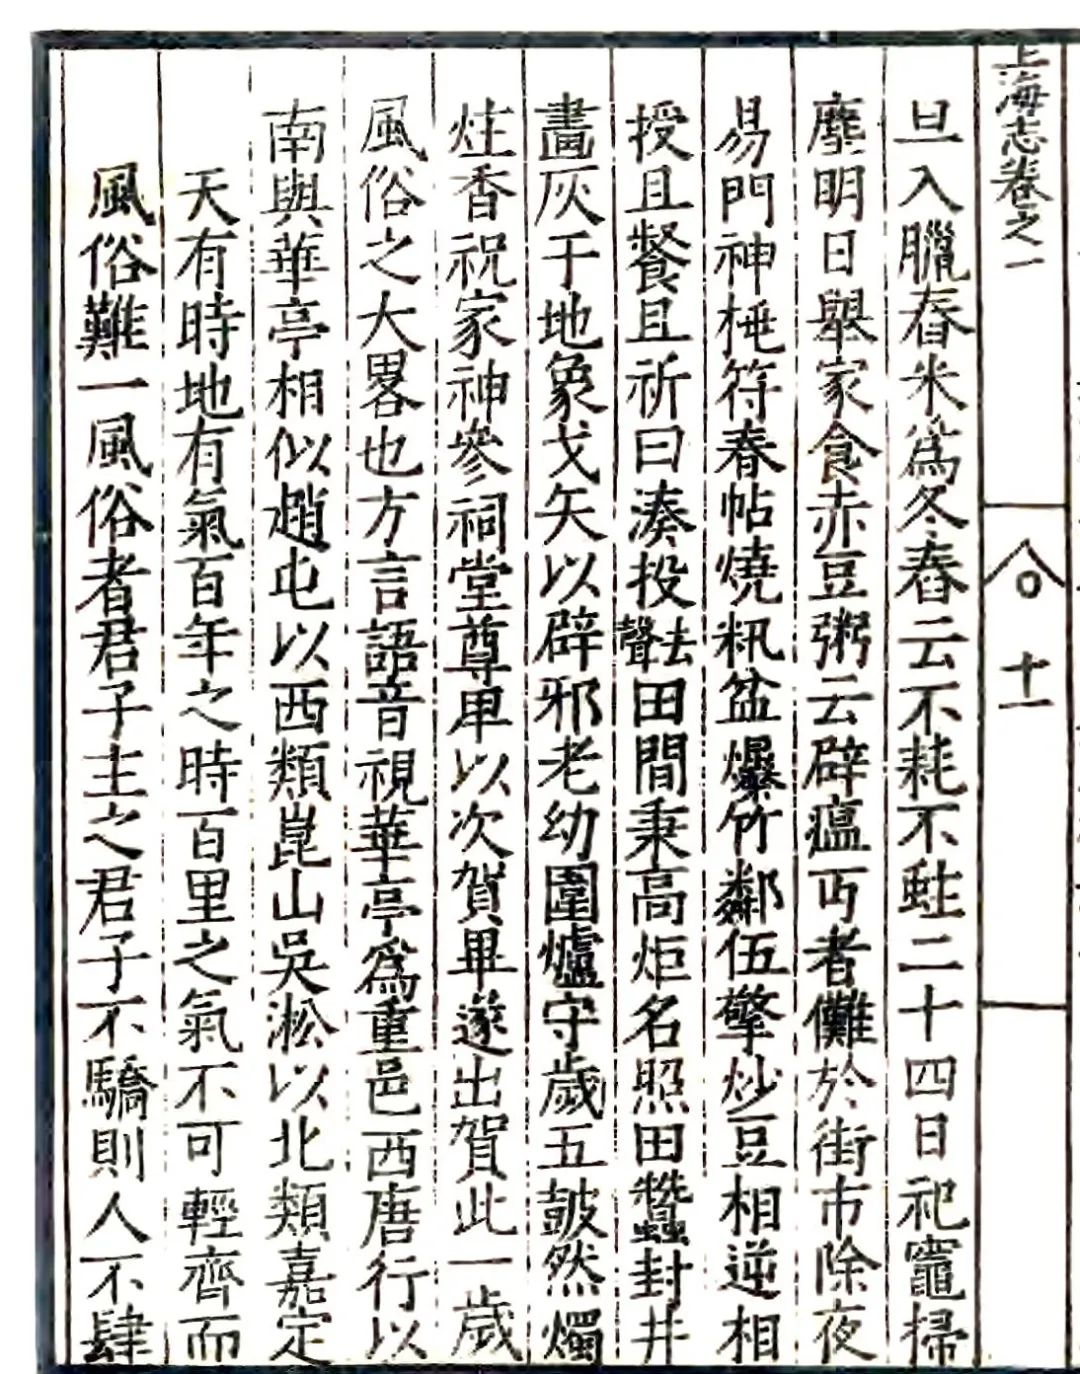 上海志卷之一
十一
旦入臘舂米爲冬舂云不耗不蛀二十四日祀竈掃
塵明日舉家食赤豆粥云辟瘟丏者儺於街市除夜
易門神桃符春帖燒籸盆爆竹鄰伍擎炒豆相逆相
授且餐且祈曰湊投去聲田間秉高炬名照田蠶封井
畫灰于地象戈矢以辟邪老幼圍爐守歲五鼓然燭
炷香祝家神參祠堂尊卑以次賀畢遂出賀此一歲
風俗之大畧也方言語音視華亭爲重邑西唐行以
南與華亭相似趙屯以西類崑山吳淞以北類嘉定
天有時地有氣百年之時百里之氣不可輕齊而
風俗難一風俗者君子主之君子不驕則人不肆